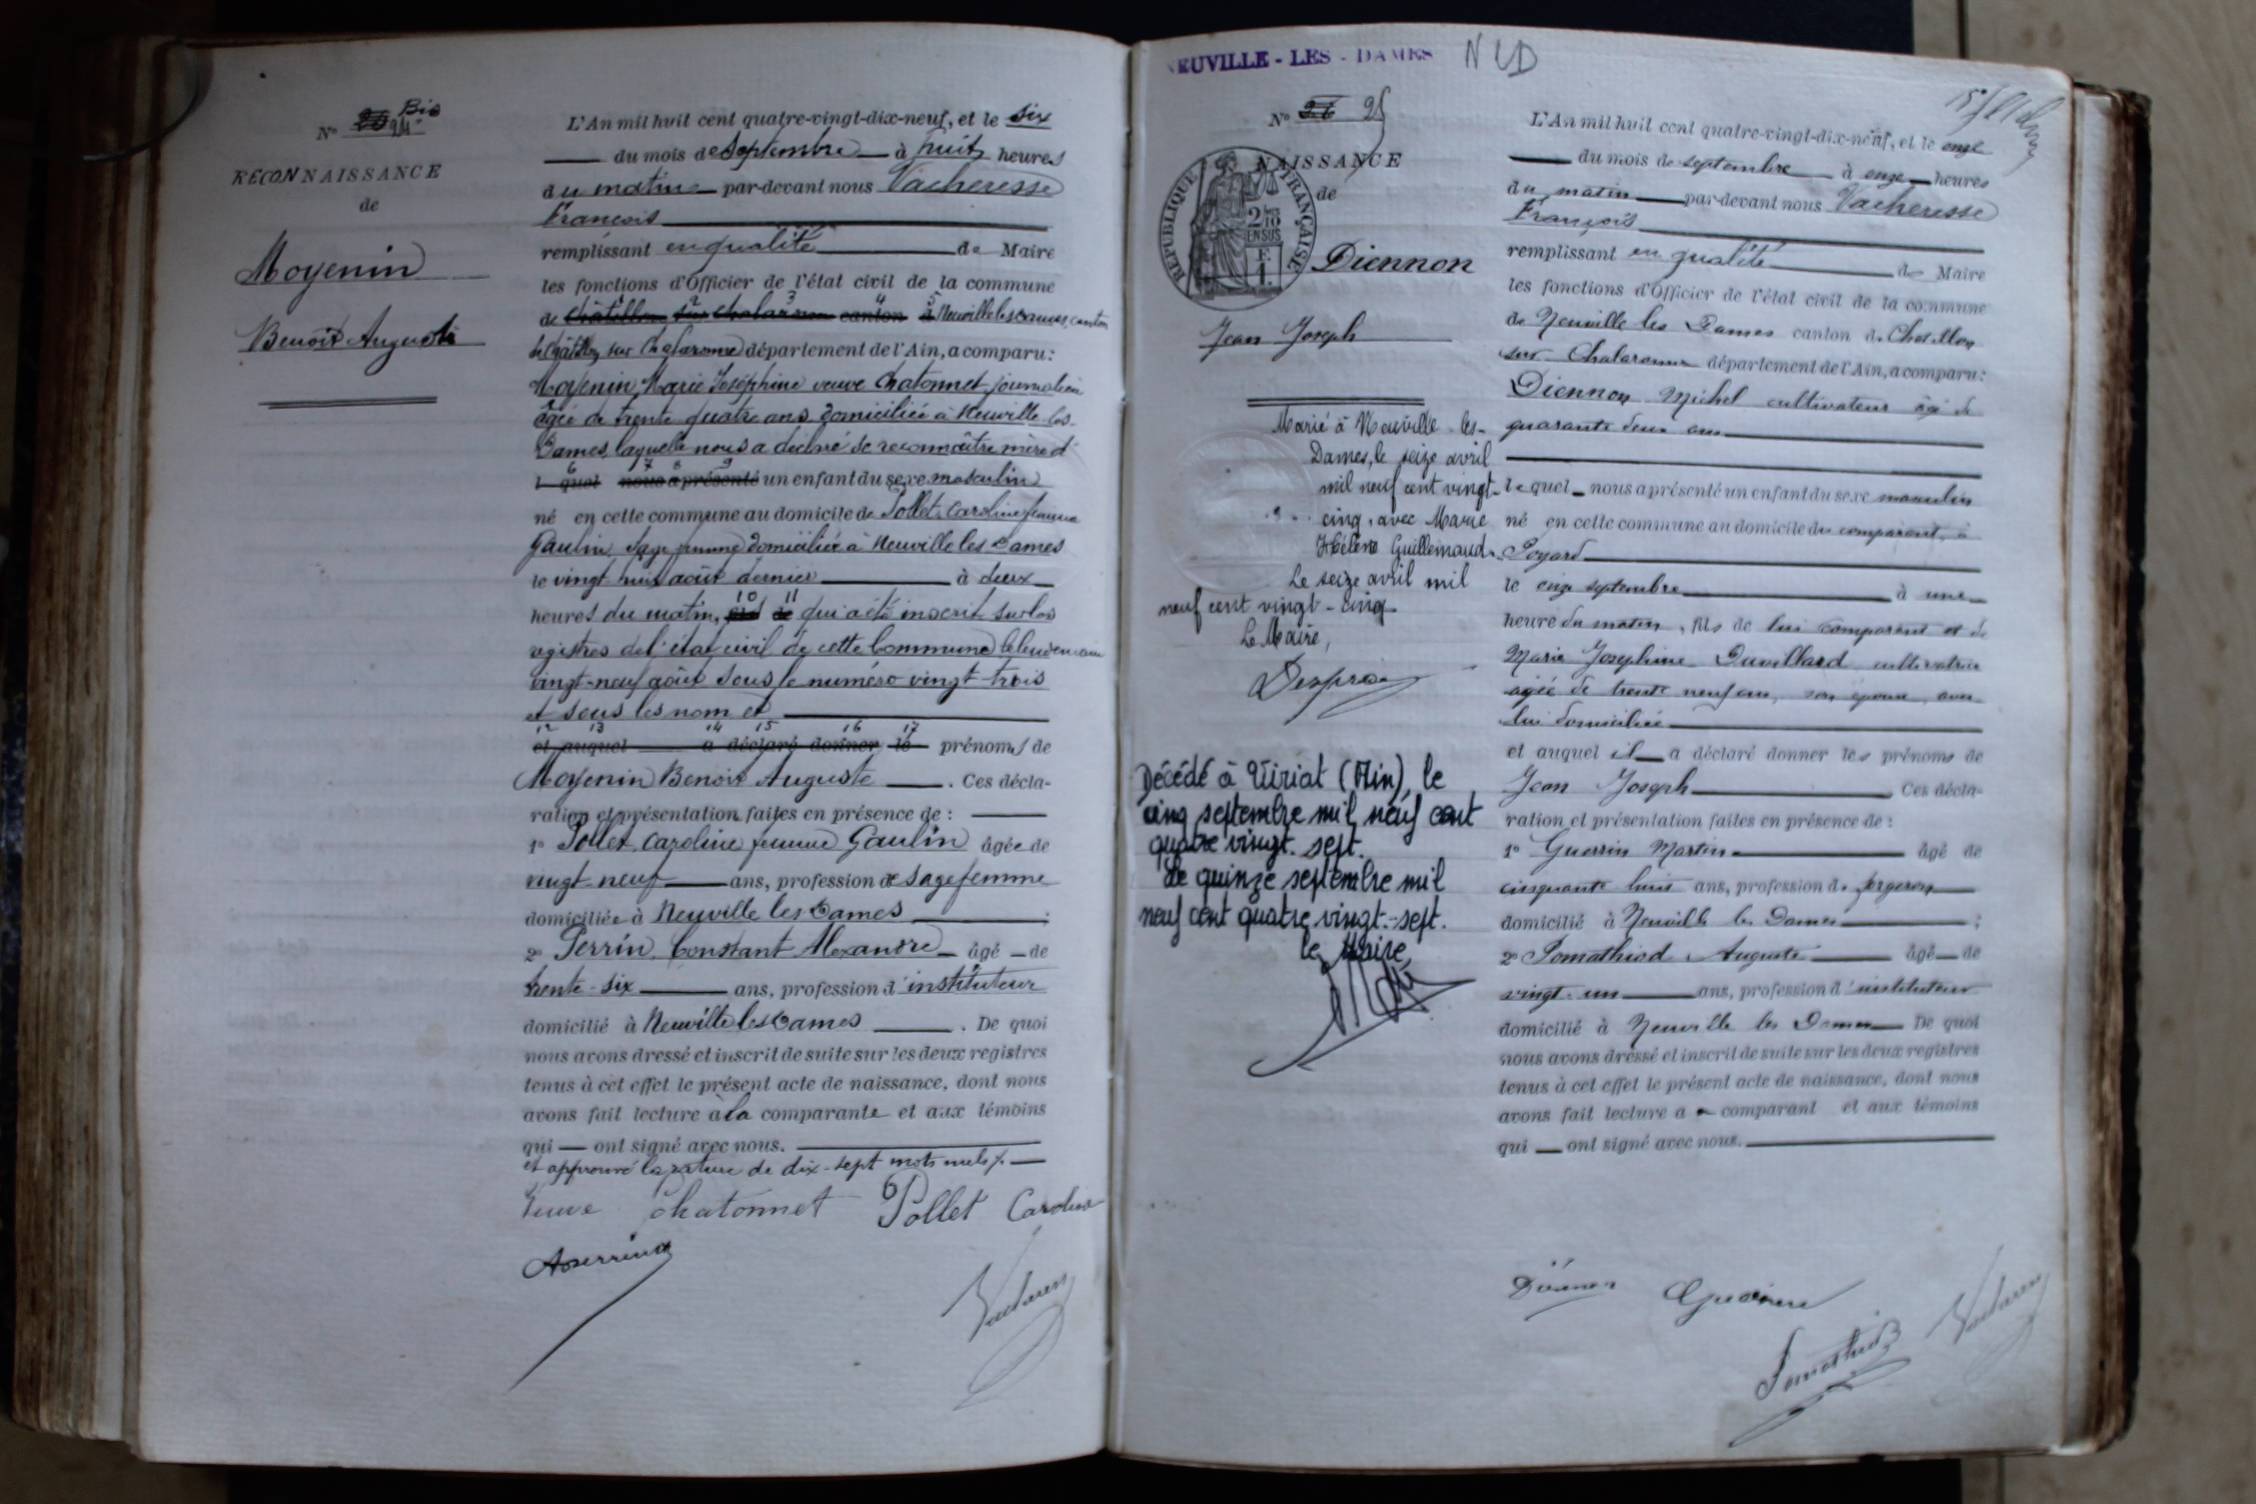 Nº 24 Bis
RECONNAISSANCE
de
Moyenin
Benoît Auguste
L'An mil huit cent quatre-vingt-dix-neuf, et le six
du mois de septembre à huit heures
du matin par-devant nous Vacheresse
François
remplissant en qualité de Maire
les fonctions d'Officier de l'état civil de la commune
de Châtillon sur Chalaronne canton d Neuville les Dames, canton
de Châtillon sur Chalaronne département de l'Ain, a comparu :
Moyenin, Marie Joséphine veuve Chatonnet journalière
âgée de trente quatre ans domiciliée à Neuville-les-
Dames, laquelle nous a déclaré se reconnaître mère d'
l quel nous a présenté un enfant du sexe masculin
né en cette commune au domicile de Pollet, Caroline femme
Gaulin, sage femme domiciliée à Neuville les Dames
le vingt huit août dernier à deux
heures du matin, qui a été inscrit sur les
registres de l'état civil de cette Commune le lendemain
vingt-neuf août sous le numéro vingt-trois
et sous les nom et
et auquel a déclaré donner le prénoms de
Moyenin Benoît Auguste. Ces décla-
ration et présentation faites en présence de :
1º Pollet, Caroline, femme Gaulin âgée de
vingt neuf ans, profession de sage femme
domiciliée à Neuville les Dames ;
2º Perrin Constant Alexandre âgé de
trente-six ans, profession d'instituteur
domicilié à Neuville les Dames. De quoi
nous avons dressé et inscrit de suite sur les deux registres
tenus à cet effet le présent acte de naissance, dont nous
avons fait lecture à la comparante et aux témoins
qui ont signé avec nous.
et approuvé la rature de dix-sept mots nuls
Veuve Chatonnet Pollet Caroline
APerrin
NEUVILLE - LES - DAMES NLD
Nº 26 25
NAISSANCE
de
RÉPUBLIQUE FRANÇAISE
2/10
EN SUS
F.
1
Diennon
Jean Joseph
Marié à Neuville-les-
Dames, le seize avril
mil neuf cent vingt-
cinq, avec Marie
Hélène Guillemaud.
Le seize avril mil
neuf cent vingt-cinq
Le Maire,
Décédé à Viriat (Ain), le
cinq septembre mil neuf cent
quatre vingt-sept.
Le quinze septembre mil
neuf cent quatre vingt-sept.
le Maire,
L'An mil huit cent quatre-vingt-dix-neuf, et le onze
du mois de septembre à onze heures
du matin par-devant nous Vacheresse
François
remplissant en qualité de Maire
les fonctions d'Officier de l'état civil de la commune
de Neuville les Dames canton de Chatillon
sur Chalaronne département de l'Ain, a comparu :
Diennon Michel cultivateur âgé de
quarante deux ans
lequel nous a présenté un enfant du sexe masculin
né en cette commune au domicile du comparant, à
Poyard
le onze septembre à une
heure du matin, fils de lui comparant et de
Marie Joséphine Duvillard cultivatrice
agée de trente neuf ans, son épouse, avec
lui domiciliée
et auquel il a déclaré donner les prénoms de
Jean Joseph Ces décla-
ration et présentation faites en présence de :
1º Guerrin Martin âgé de
cinquante huit ans, profession de forgeron
domicilié à Neuville les Dames ;
2º Pomathiod Auguste âgé de
vingt-un ans, profession d'instituteur
domicilié à Neuville les Dames De quoi
nous avons dressé et inscrit de suite sur les deux registres
tenus à cet effet le présent acte de naissance, dont nous
avons fait lecture a comparant et aux témoins
qui ont signé avec nous.
Diennon